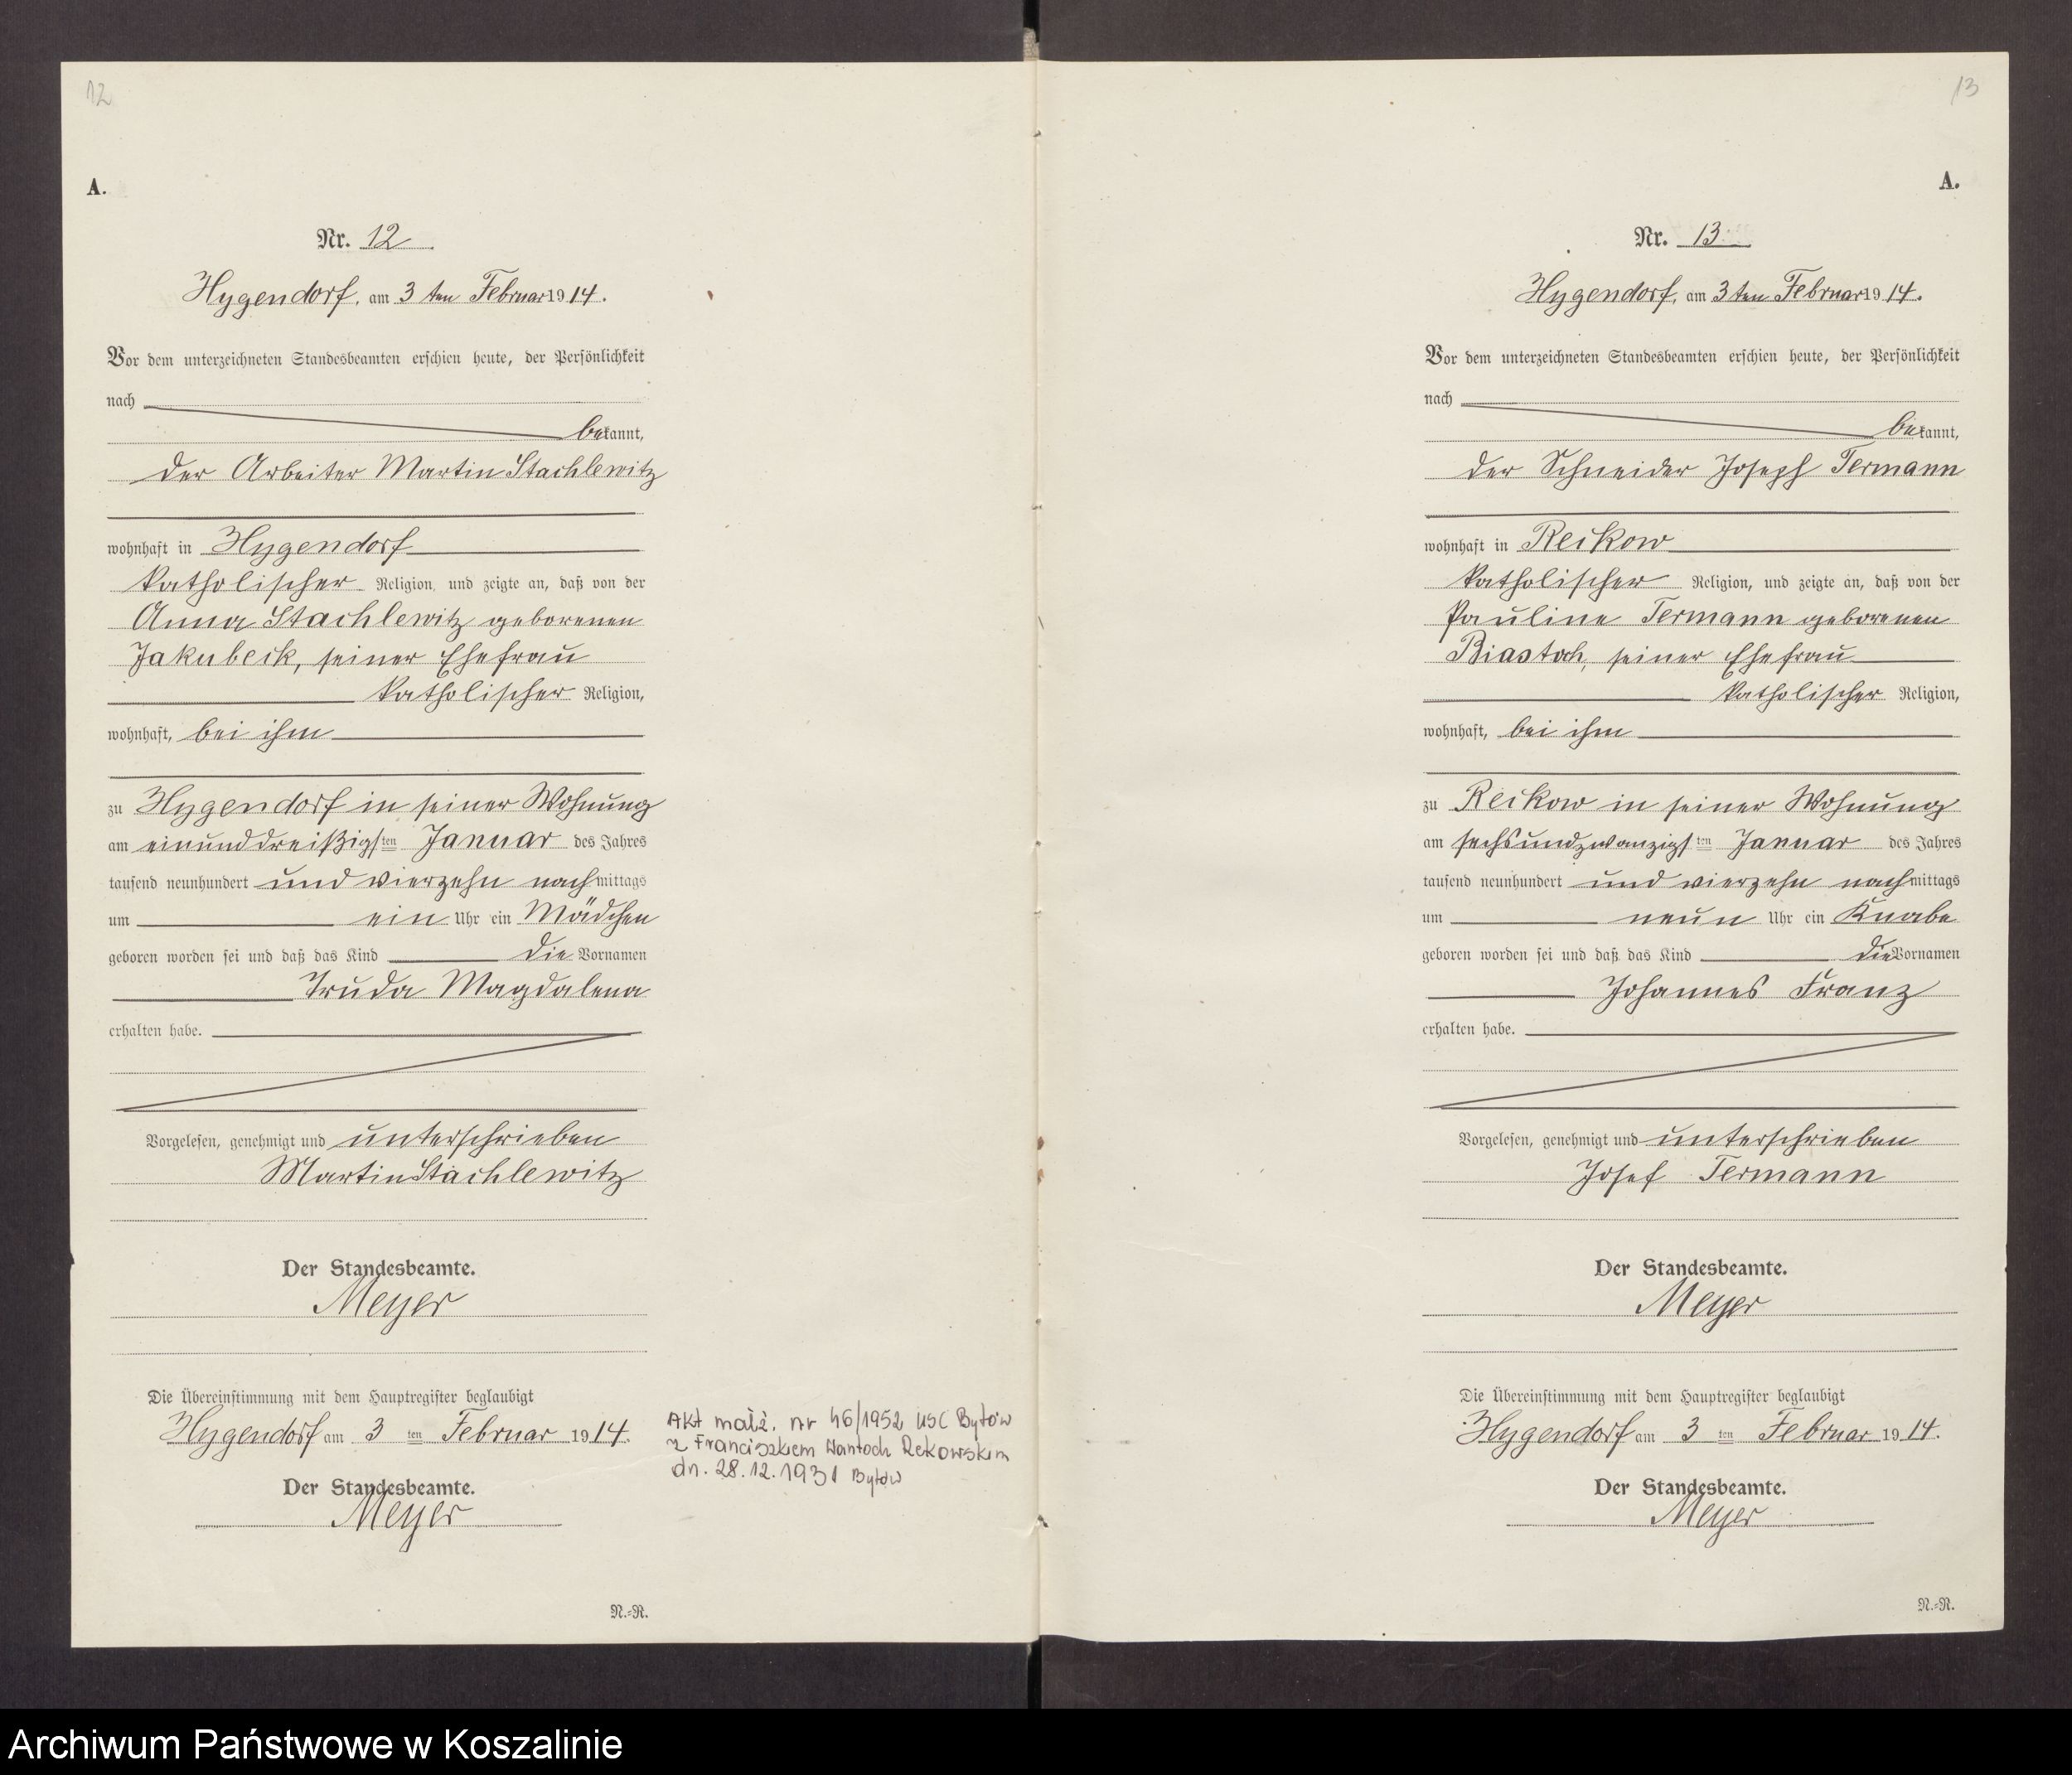 12
A.
Nr. 12
Hygendorf, am 3 ten Februar 1914.
Vor dem unterzeichneten Standesbeamten erschien heute, der Persönlichkeit
nach
bekannt,
der Arbeiter Martin Stachlewitz
wohnhaft in Hygendorf
katholischer Religion, und zeigte an, daß von der
Anna Stachlewitz geborenen
Jakubeik, seiner Ehefrau
katholischer Religion,
wohnhaft, bei ihm
zu Hygendorf in seiner Wohnung
am einunddreißigsten Januar des Jahres
tausend neunhundert und vierzehn nachmittags
um ein Uhr ein Mädchen
geboren worden sei und daß das Kind die Vornamen
Truda Magdalena
erhalten habe.
Vorgelesen, genehmigt und unterschrieben
Martin Stachlewitz
Der Standesbeamte.
Meyer
Die Übereinstimmung mit dem Hauptregister beglaubigt
Hygendorf am 3 ten Februar 1914.
Der Standesbeamte.
Meyer
N.-R.
Akt małż. nr 46/1952 USC Bytów
z Franciszkiem Wantoch Rekowskim
dn. 28.12.1931 Bytów
13
A.
Nr. 13
Hygendorf, am 3 ten Februar 1914.
Vor dem unterzeichneten Standesbeamten erschien heute, der Persönlichkeit
nach
bekannt,
der Schneider Joseph Termann
wohnhaft in Reckow
katholischer Religion, und zeigte an, daß von der
Pauline Termann geborenen
Biastoch, seiner Ehefrau
katholischer Religion,
wohnhaft, bei ihm
zu Reckow in seiner Wohnung
am sechsundzwanzigsten Januar des Jahres
tausend neunhundert und vierzehn nachmittags
um neun Uhr ein Knabe
geboren worden sei und daß das Kind die Vornamen
Johannes Franz
erhalten habe.
Vorgelesen, genehmigt und unterschrieben
Josef Termann
Der Standesbeamte.
Meyer
Die Übereinstimmung mit dem Hauptregister beglaubigt
Hygendorf am 3 ten Februar 1914.
Der Standesbeamte.
Meyer
N.-R.
Archiwum Państwowe w Koszalinie